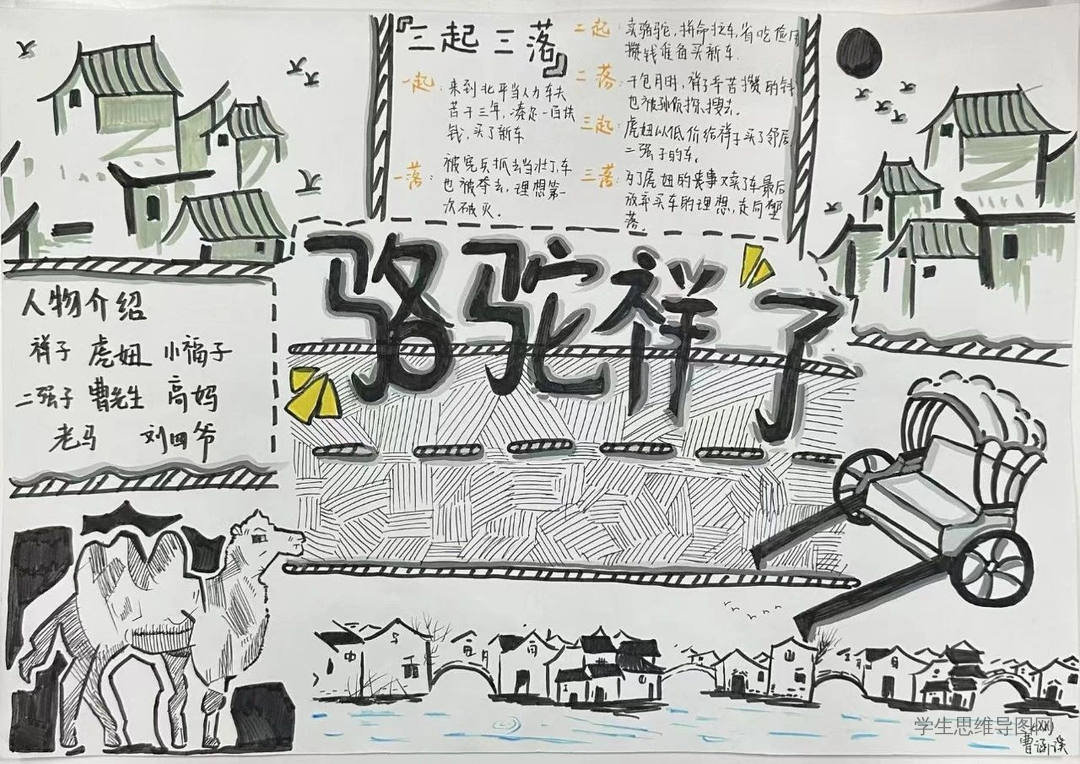 『三起三落』
一起：来到北平当人力车夫
苦干三年，凑足一百块
钱，买了新车
一落：被宪兵抓去当壮丁，车
也被夺去，理想第一
次破灭。
二起：卖骆驼，拼命拉车，省吃俭用
攒钱准备买新车
二落：干包月时，祥子辛苦攒的钱
也被孙侦探搜去。
三起：虎妞以低价给祥子买了邻居
二强子的车。
三落：为了虎妞的丧事又卖了车最后
放弃买车的理想，走向堕
落。
骆驼祥了
人物介绍
祥子 虎妞 小福子
二强子 曹先生 高妈
老马 刘四爷
学生思维导图网